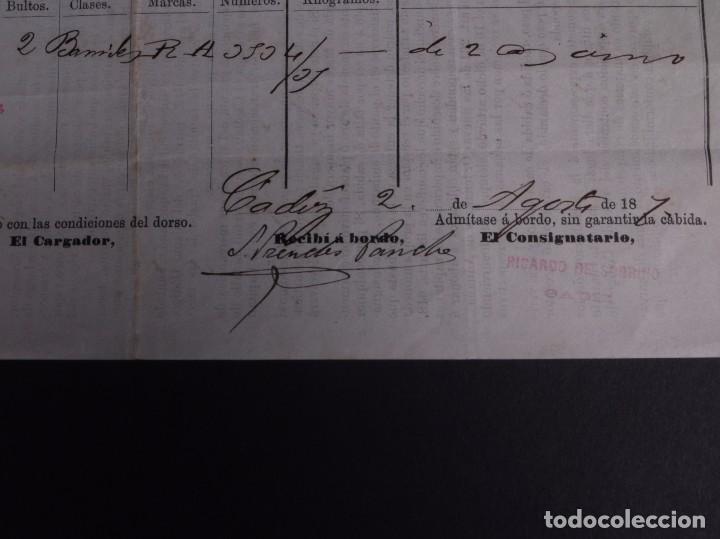 Bultos. Clases. Marcas. Números. Kilógramos.
2 Barriles R A 3504/05 — de 2 @ vino
Cadiz 2. de Agosto de 187
o con las condiciones del dorso. Admítase á bordo, sin garantir la cabida.
El Cargador, Recibí á bordo, El Consignatario,
RICARDO DE SOBRINO
CADIZ
todocoleccion.net